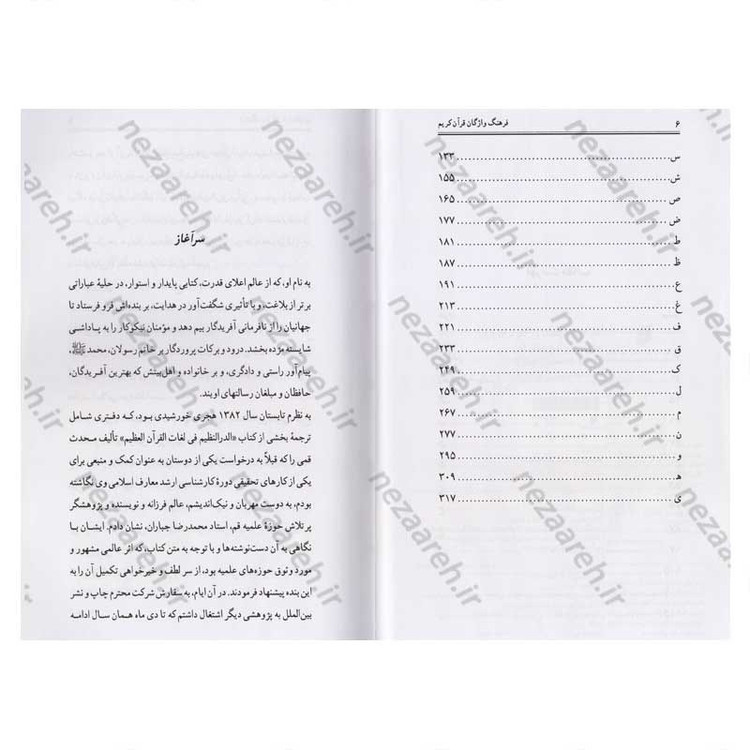 ۶
فرهنگ واژگان قرآن کریم
س ۱۳۳
ش ۱۵۵
ص ۱۶۵
ض ۱۷۷
ط ۱۸۱
ظ ۱۸۷
ع ۱۹۱
غ ۲۱۳
ف ۲۲۱
ق ۲۳۳
ک ۲۴۹
ل ۲۵۹
م ۲۶۷
ن ۲۷۷
و ۲۹۵
ه ۳۰۹
ی ۳۱۷
سرآغاز
به نام او، که از عالم اعلای قدرت، کتابی پایدار و استوار، در حلیۀ عباراتی
برتر از بلاغت، و با تأثیری شگفت‌آور در هدایت، بر بنده‌اش فرو فرستاد تا
جهانیان را از نافرمانی آفریدگار بیم دهد و مؤمنان نیکوکار را به پاداشی
شایسته مژده بخشد. درود و برکات پروردگار بر خاتم رسولان، محمد ﷺ،
پیام‌آور راستی و دادگری، و بر خانواده و اهل‌بیتش که بهترین آفریدگان،
حافظان و مبلغان رسالتهای اویند.
به نظرم تابستان سال ۱۳۸۲ هجری خورشیدی بود، که دفتری شامل
ترجمۀ بخشی از کتاب «الدرالنظیم فی لغات القرآن العظیم» تألیف محدث
قمی را که قبلاً به درخواست یکی از دوستان به عنوان کمک و منبعی برای
یکی از کارهای تحقیقی دورۀ کارشناسی ارشد معارف اسلامی وی نگاشته
بودم، به دوست مهربان و نیک‌اندیشم، عالم فرزانه و نویسنده و پژوهشگر
پرتلاش حوزۀ علمیه قم، استاد محمدرضا جباران، نشان دادم. ایشان با
نگاهی به آن دست‌نوشته‌ها و با توجه به متن کتاب، که اثر عالمی مشهور و
مورد وثوق حوزه‌های علمیه بود، از سر لطف و خیرخواهی تکمیل آن را به
این بنده پیشنهاد فرمودند. در آن ایام، به سفارش شرکت محترم چاپ و نشر
بین‌الملل به پژوهشی دیگر اشتغال داشتم که تا دی ماه همان سال ادامه
nezaareh.ir
nezaareh.ir
nezaareh.ir
nezaareh.ir
nezaareh.ir
nezaareh.ir
nezaareh.ir
nezaareh.ir
nezaareh.ir